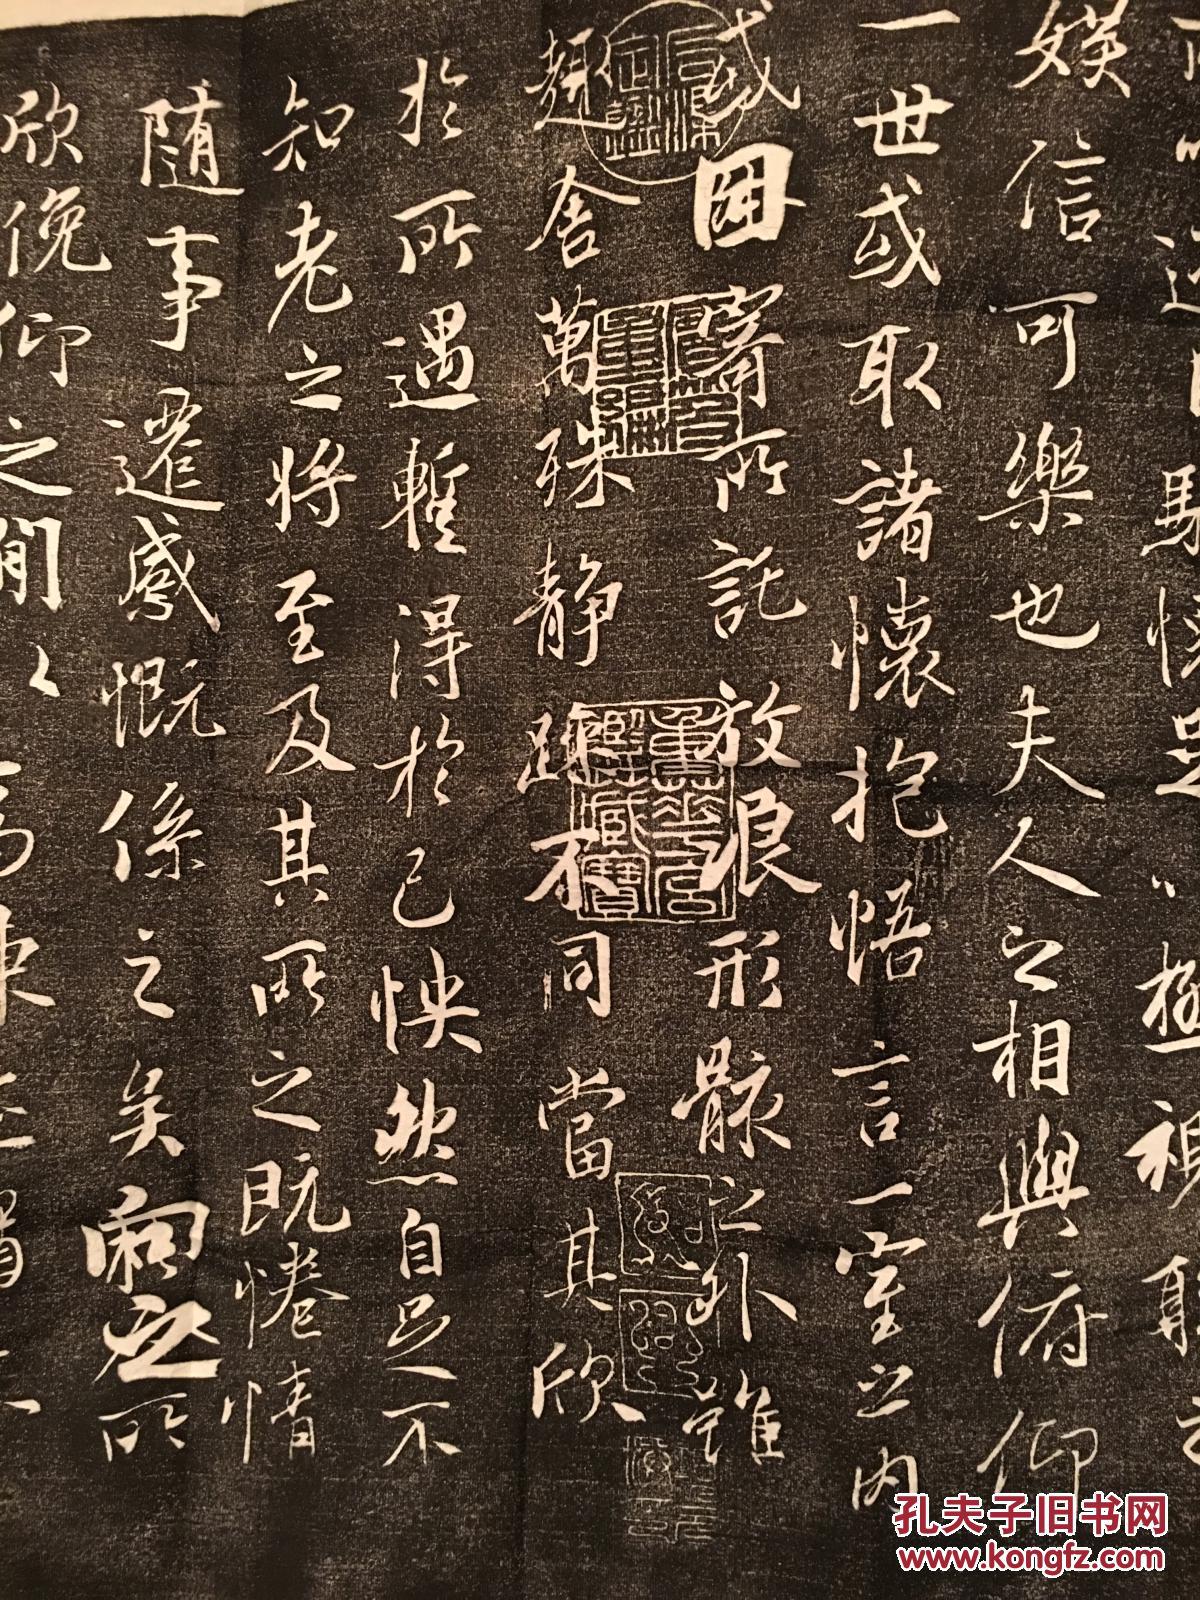 騁懷足以極視聽
娛信可樂也夫人之相與俯仰
一世或取諸懷抱悟言一室之內
或因寄所託放浪形骸之外雖
趣舍萬殊靜躁不同當其欣
於所遇暫得於己怏然自足不
知老之將至及其所之既惓情
隨事遷感慨係之矣向之所
欣俛仰之間以
孔夫子旧书网
www.kongfz.com